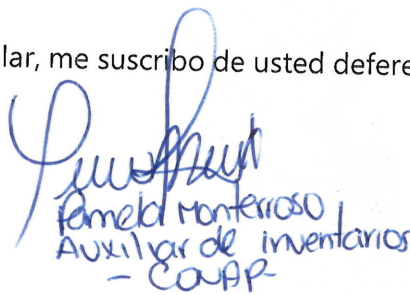 lar, me suscribo de usted defere
Pamela Monterroso
Auxiliar de inventarios
- CONAP